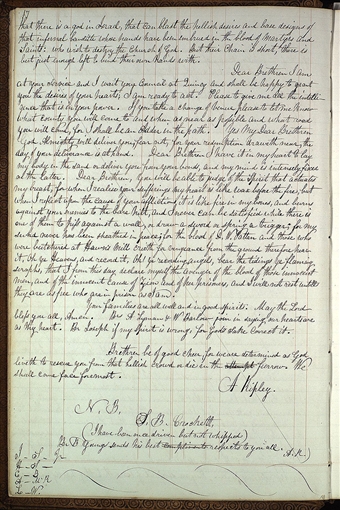 that there is a god in Israel, that can blast the hellish desires and base designs of
that infernal banditti whose hands have been embrued in the blood of Martyrs and
Saints: who wish to destroy the Church of God. But their Chain is short, there is
but just enough left to bind their own hands with.
Dear Brethren I am
at your service and I wait your Council at Quincy and shall be happy to grant
you the desire of your hearts, I am ready to act. Please to give me all the intelli-
gence that is in your power. If you take a change of venue please to let me know
what county you will come to and when as near as possible and what road
you will come, for I shall be an Adder in the path. Yes My Dear Brethren
God Almighty will deliver you, fear not, for your redemption draweth near, the
day of your deliverance is at hand. Dear Brethren I have it in my heart to lay
my body in the sand or deliver you from your bonds, and my mind is intensely fixed
on the latter. Dear Brethren, You will be able to judge of the Spirit that actuates
my breast, for when I realize your sufferings my heart is like wax before the fire, but
when I reflect upon the cause of your afflictions it is like fire in my bones, and burns
against your enemies to the bare hilt, and I never can be satisfied while there is
one of them to piss against a wall, or draw a sword or spring a trigger; for my
sword never has been sheathed in peace; for the blood of D. W. Patten and those who
were butchered at Hawns Mill crieth for vengeance from the ground therefore hear
it, Oh ye Heavens, and record it, Oh ye recording angels, bear the tidings ye flaming
seraphs, that I from this day declare myself the avenger of the blood of those innocent
men, and of the innocent cause of Zion and of her prisoners, and I will not rest untill
they are as free who are in prison as I am.
Your families are all well and in good spirits. May the Lord
bless you all, Amen. Brs A Lyman & W Barlow join in saying our hearts are
as thy heart. Br Joseph if my Spirit is wrong, for Gods sake correct it.
Brethren be of good cheer, for we are determined as God
liveth to rescue you from that hellish crowd or die in the furrow. We
shall come face foremost.
A. Ripley.
N. B.
S. B. Crockett,
(I have been once driven but not whipped)
Br. B. Young sends his best respects to you all. A. R.)